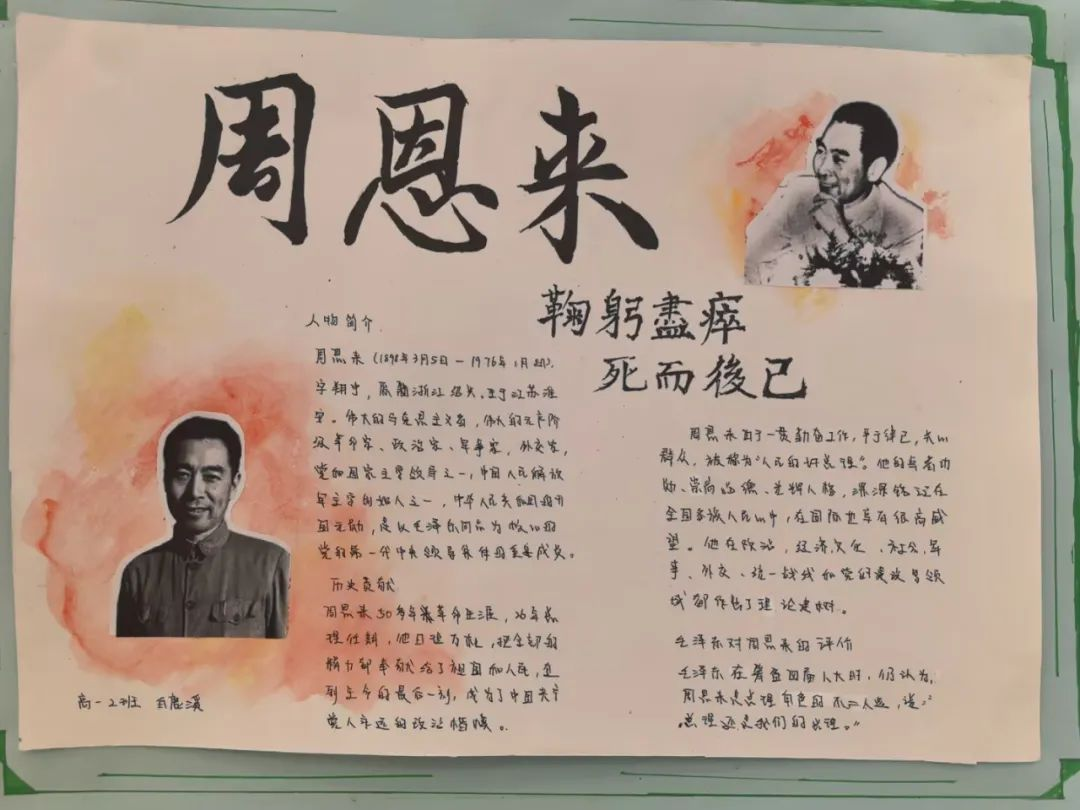 周恩来
鞠躬盡瘁
死而後已
人物简介
周恩来（1898年3月5日－1976年1月8日），
字翔宇，原籍浙江绍兴，生于江苏淮
安。伟大的马克思主义者，伟大的无产阶
级革命家、政治家、军事家，外交家，
党和国家主要领导之一，中国人民解放
军主要创始人之一，中华人民共和国开
国元勋，是以毛泽东同志为核心的
党的第一代中央领导集体的重要成员。
历史贡献
周恩来50多年革命生涯，26年总
理任期，他日理万机，把全部的
精力都奉献给了祖国和人民，直
到生命的最后一刻，成为了中国共产
党人永远的政治楷模。
周恩来由于一贯勤奋工作，严于律己，关心
群众，被称为“人民的好总理”。他的卓著功
勋、崇高品德、光辉人格，深深铭记在
全国各族人民心中，在国际也享有很高威
望。他在政治，经济文化、社会，军
事、外交、统一战线和党的建设多领
域都作出了理论建树。
毛泽东对周恩来的评价
毛泽东在筹备四届人大时，仍认为，
周恩来是总理角色的不二人选，说：“
总理还是我们的总理。”
高一2班